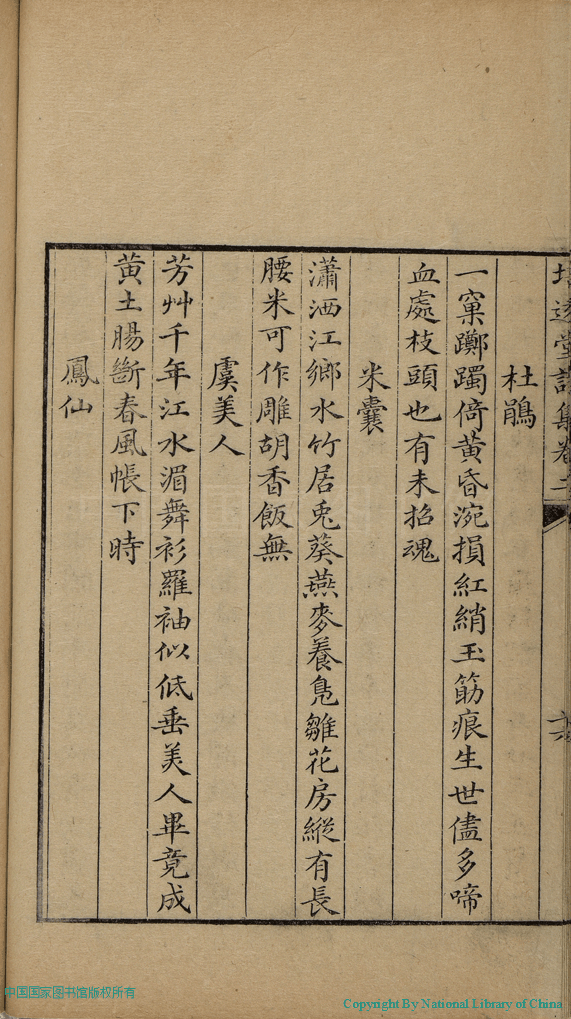 堂詩集卷二
六
杜鵑
一窠躑躅倚黃昏涴損紅綃玉筯痕生世儘多啼
血處枝頭也有未招魂
米囊
瀟洒江鄉水竹居兎葵燕麥養鳧雛花房縱有長
腰米可作雕胡香飯無
虞美人
芳艸千年江水湄舞衫羅袖似低垂美人畢竟成
黃土腸斷春風帳下時
鳳仙
中国国家图书馆版权所有
Copyright By National Library of China